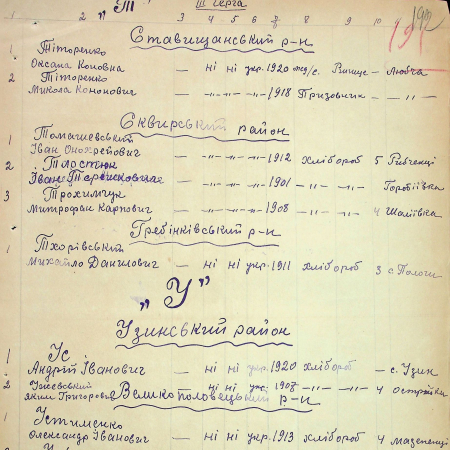 "Т" III черга
1 2 3 4 5 6 7 8 9 10
Ставищанський р-н
1 Тіторенко
Оксана Коновна — ні ні укр. 1920 Вчище - Любча
2 Тіторенко
Микола Кононович — -"- -"- -"- 1918 Призовник — -"-
Сквирський район
1 Томашевський
Іван Онохрейович — -"- -"- -"- 1912 хлібороб 5
2 Тарстюк
Іван — -"- -"- -"- 1901 -"- -"- Горобіївка
3 Трохимчук
Митрофан Карпович — -"- -"- -"- 1908 -"- -"- 4 Шаліївка
Гребінківський р-н
1 Тхорівський
Михайло Данилович — ні ні укр. 1911 хлібороб 3 с. Пологи
"У"
Узинський район
1 Ус
Андрій Іванович — ні ні укр. 1920 хлібороб — с. Узин
2 Ужевський
Яким Григоров — ні ні укр. 1908 -"- -"- 4 Острійки
Великополовецький р-н
1 Устименко
Олександр Іванович — ні ні укр. 1913 хлібороб 4 Мазепенці